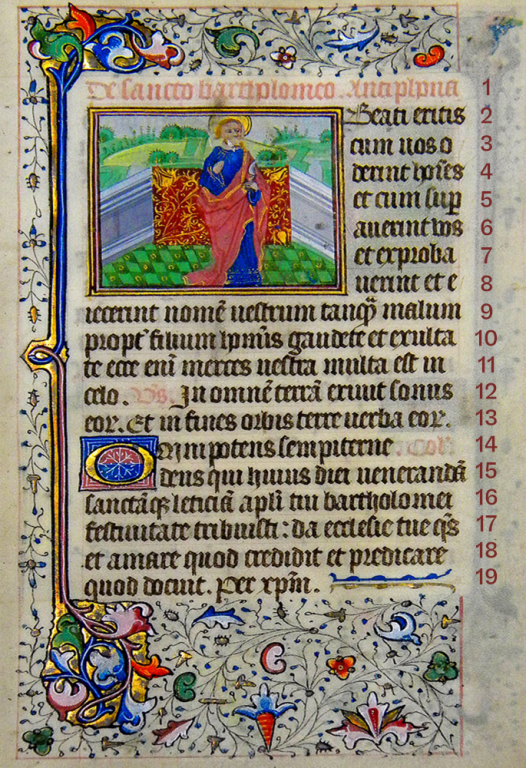 De sancto bartholomeo. Antiphona 1
Beati eritis 2
cum uos o 3
derint hoı̄es 4
et cum sup 5
auerint vos 6
et exproba 7
uerint et e 8
iecerint nomē uestrum tanqȝ malum 9
propt᷒ filium homīs gaudete et exulta 10
te ecce enī merces uestra multa est in 11
celo. Vs. In omnē terrā exiuit sonus 12
eoꝝ. Et in fines orbis terre uerba eoꝝ. 13
Omnipotens sempiterne Coll 14
deus qui huius diei venerandā 15
sanctāqȝ leticiā apľi tui bartholomei 16
festiuitate tribuisti: da ecclesie tue q̄s 17
et amare quod credidit et predicare 18
quod docuit. Per xp̄m. 19